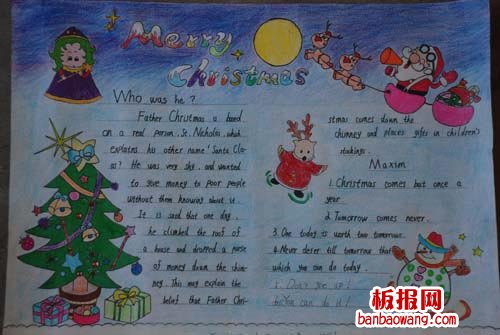 Merry
Christmas
Who was he?
Father Christmas is based
on a real person, St. Nicholas, which
explains his other name 'Santa Cla-
as'? He was very shy, and wanted
to give money to poor people
without them knowing about it.
It is said that one day,
he climbed the roof of
a house and dropped a purse
of money down the chim-
ney. This may explain the
belief that Father Chri-
stmas comes down the
chimney and places gifts in children's
stockings.
Maxim
1. Christmas comes but once a
year
2. Tomorrow comes never.
3. One today is worth two tomorrows.
4. Never defer till tomorrow that
which you can do today.
5. Don't give up!
You can do it!
板报网
banbaowang.com